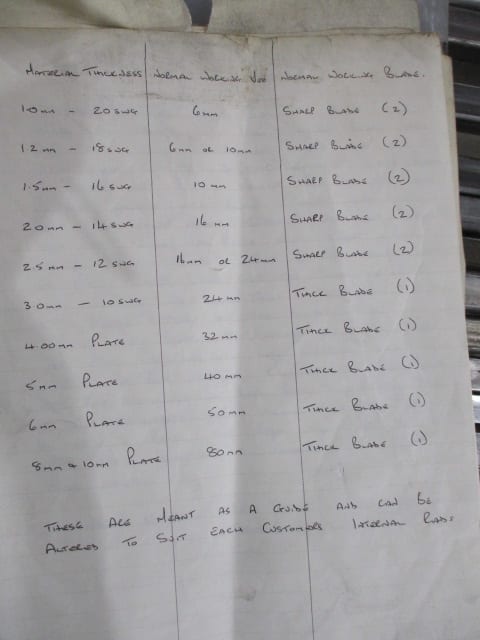 MATERIAL THICKNESS NORMAL WORKING VEE NORMAL WORKING BLADE.
1.0mm - 20 SWG 6mm SHARP BLADE (2)
1.2mm - 18 SWG 6mm OR 10mm SHARP BLADE (2)
1.5mm - 16 SWG 10mm SHARP BLADE (2)
2.0mm - 14 SWG 16mm SHARP BLADE (2)
2.5mm - 12 SWG 16mm OR 24mm SHARP BLADE (2)
3.0mm - 10 SWG 24mm THICK BLADE (1)
4.00mm PLATE 32mm THICK BLADE (1)
5mm PLATE 40mm THICK BLADE (1)
6mm PLATE 50mm THICK BLADE (1)
8mm & 10mm PLATE 80mm THICK BLADE (1)
THESE ARE MEANT AS A GUIDE AND CAN BE
ALTERED TO SUIT EACH CUSTOMERS INTERNAL RADS.